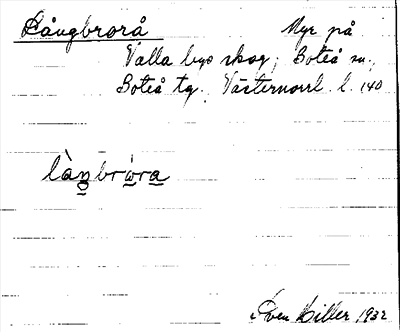 Långbrorå Myr på
Valla bys skog, Boteå sn.,
Boteå tg. Västernorrl. l. 140
làŋbrẁra
Sven Hiller 1932